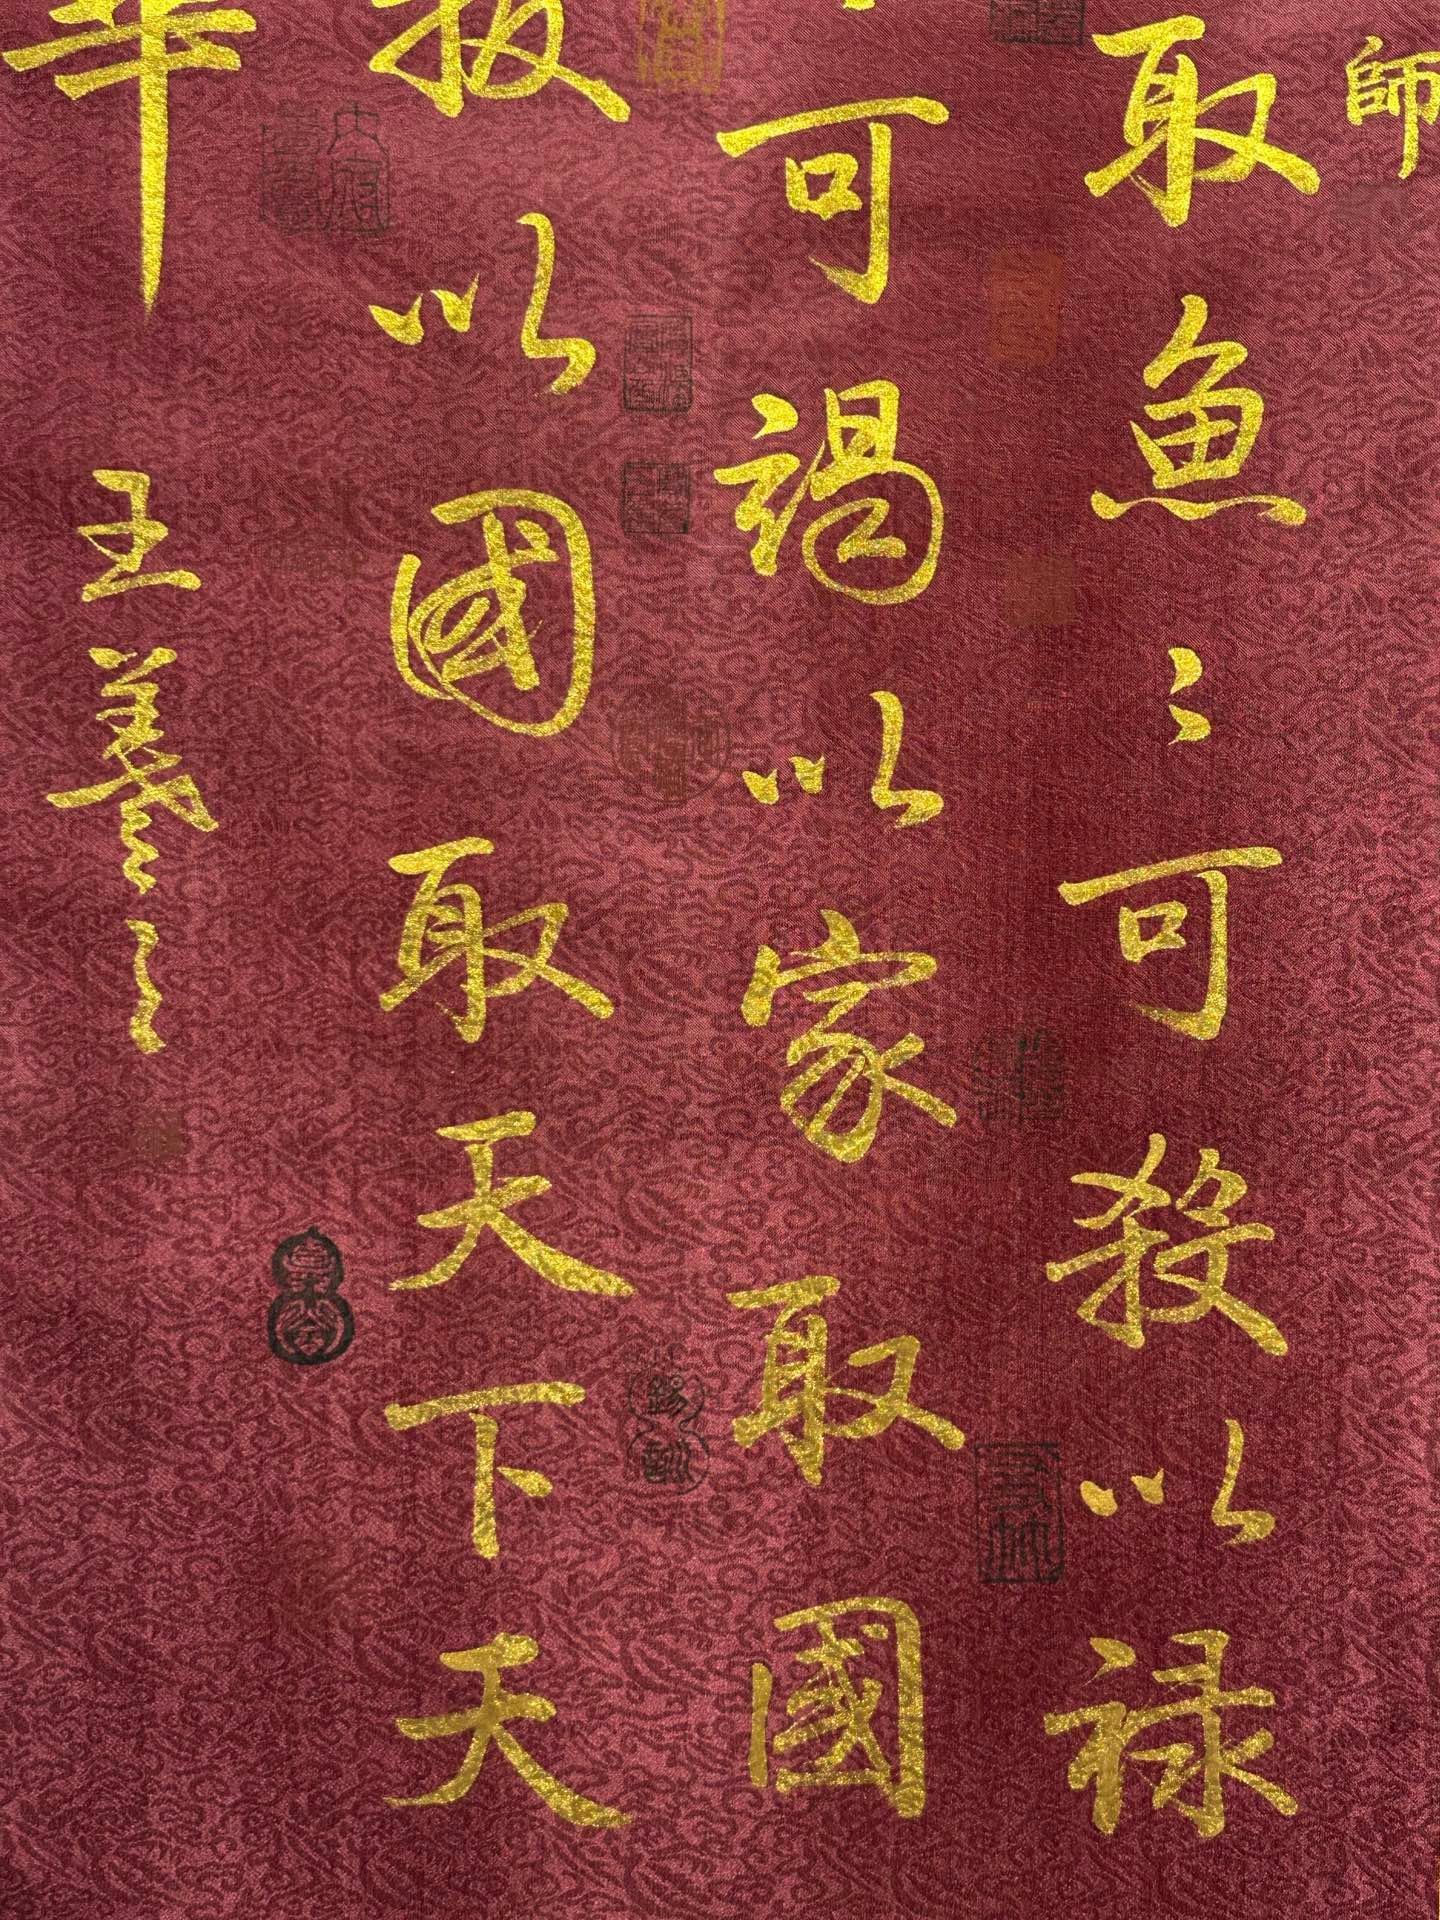 師
取魚魚可殺以禄
可竭以家取國
拔以國取天下天
畢
王羲之